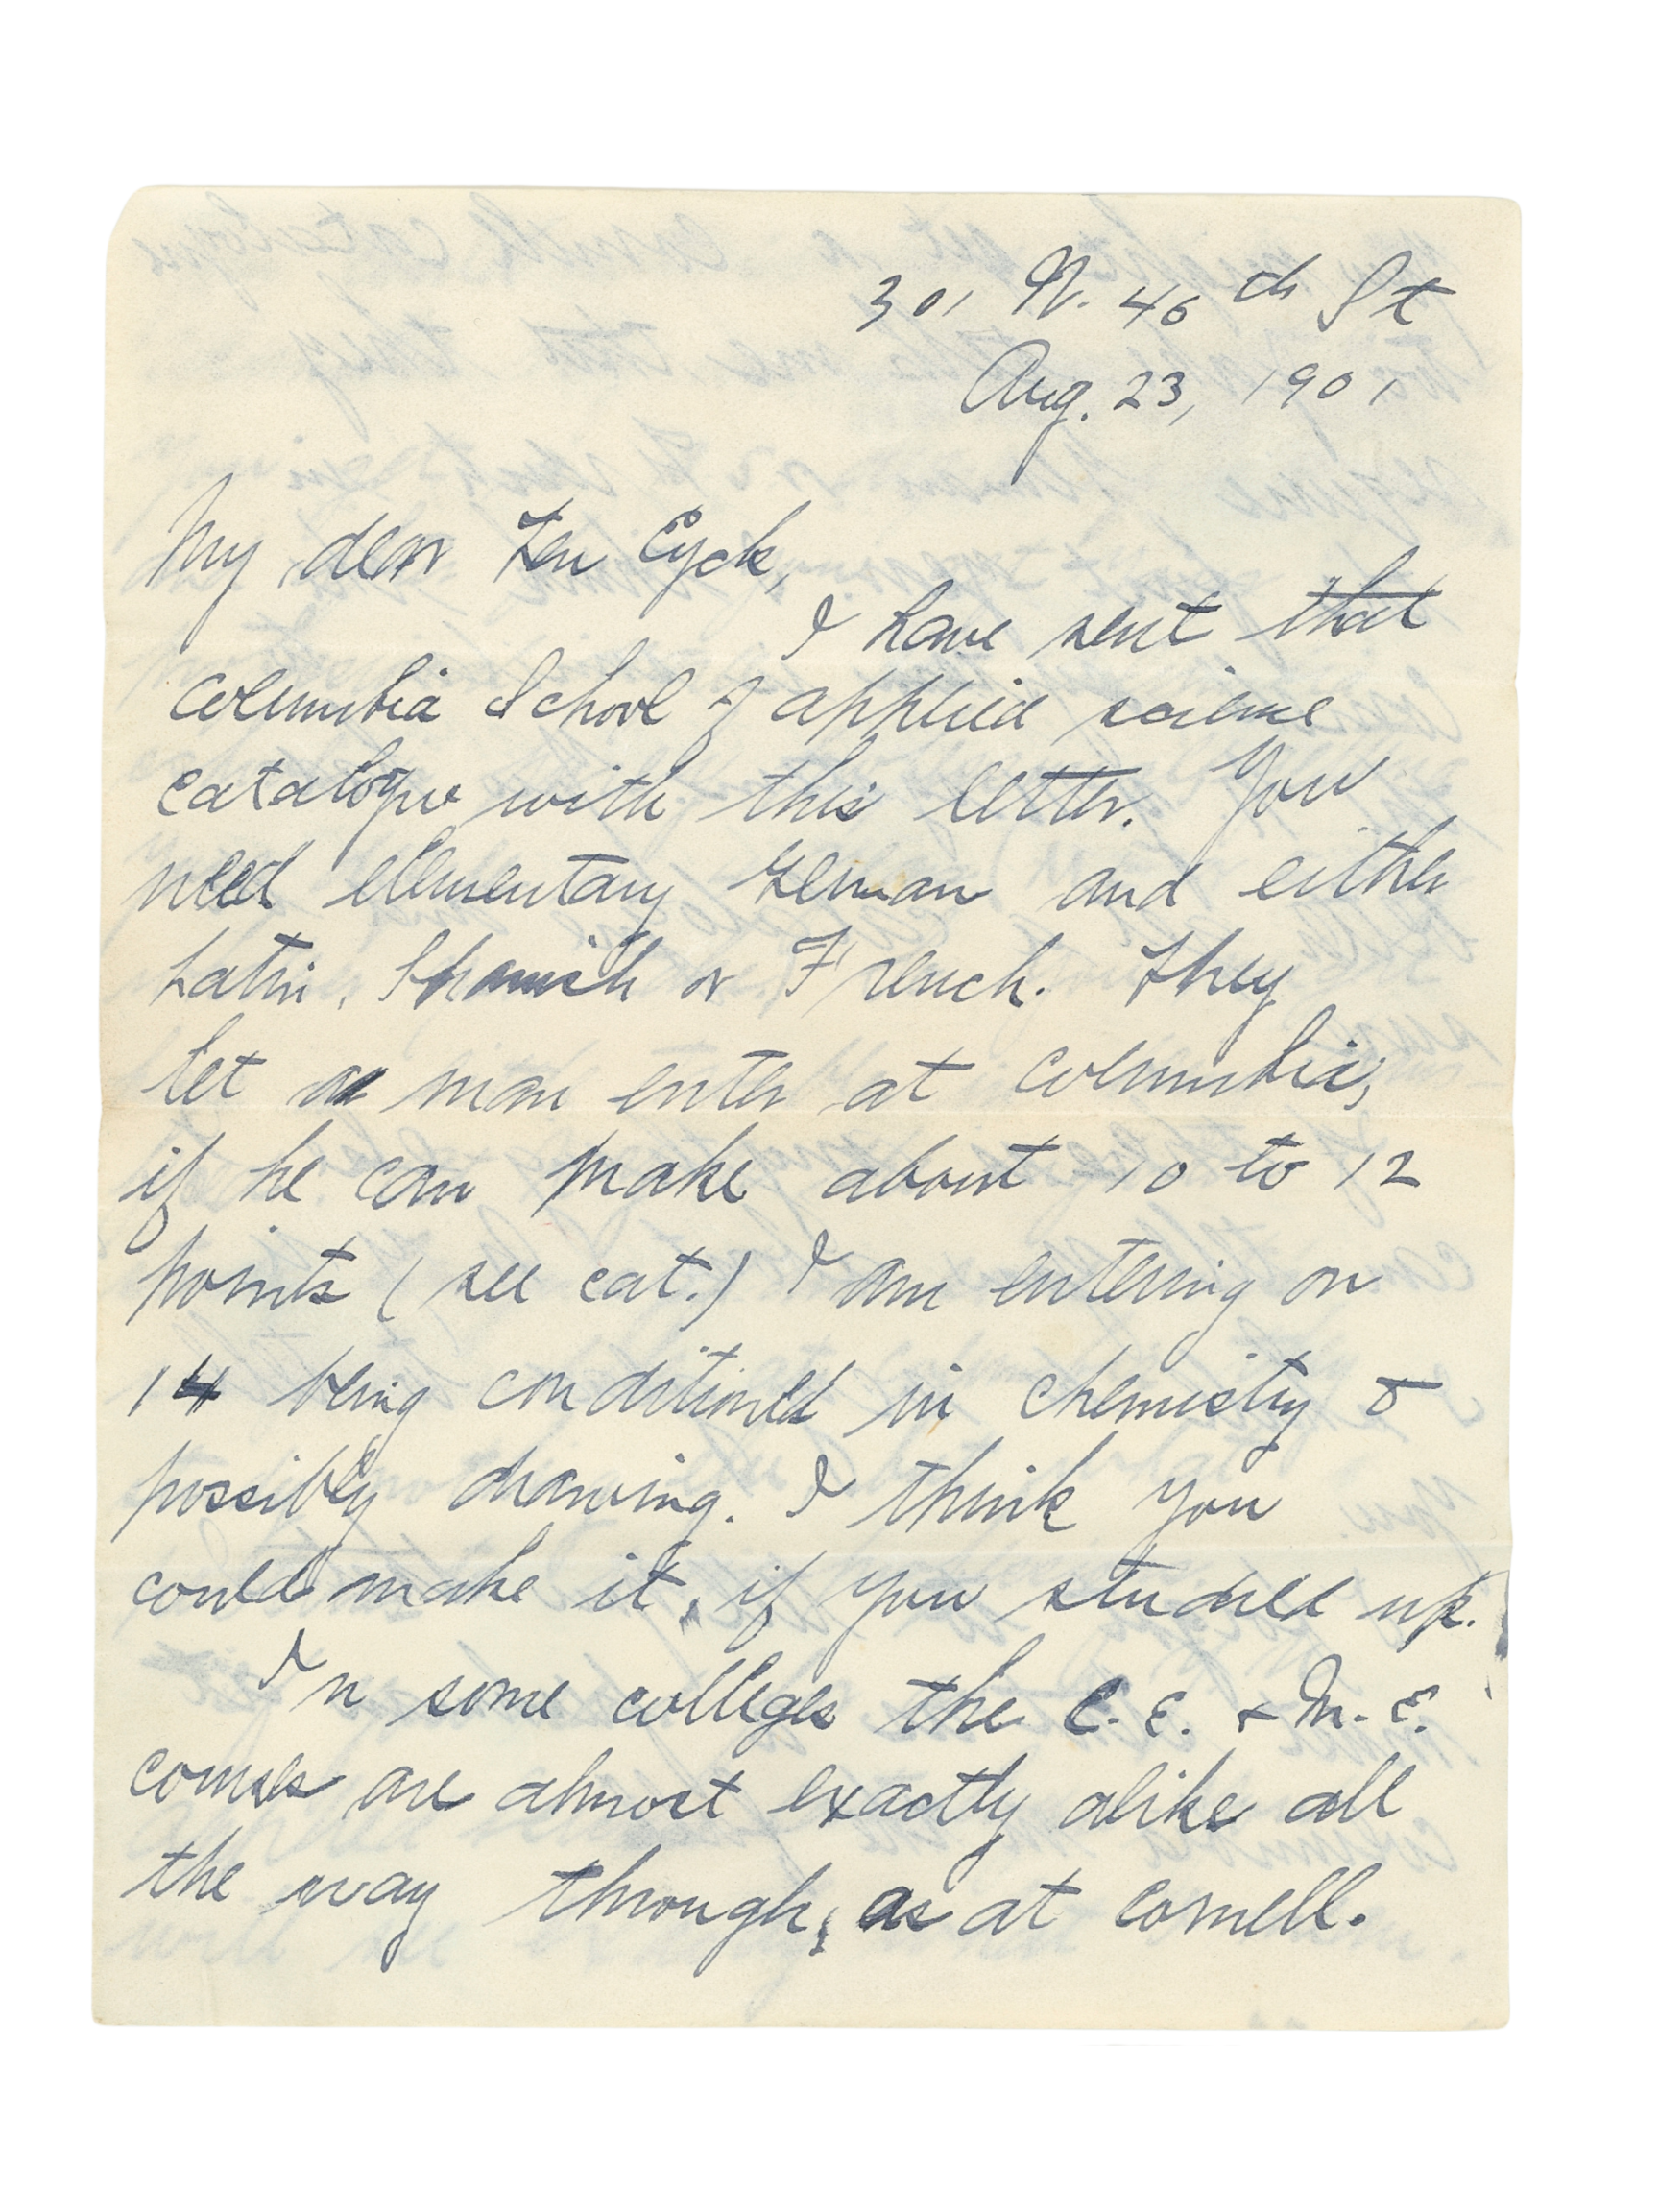 301 W. 46th St
Aug. 23, 1901
My dear Ten Eyck,
I have sent that
Columbia School of applied science
catalogue with this letter. You
need elementary German and either
Latin, Spanish or French. They
let a man enter at Columbia,
if he can make about 10 to 12
points (see cat.) I am entering on
14 being conditioned in chemistry &
possibly drawing. I think you
could make it, if you studied up.
In some colleges the C.E. & M.E.
courses are almost exactly alike all
the way through, as at Cornell.